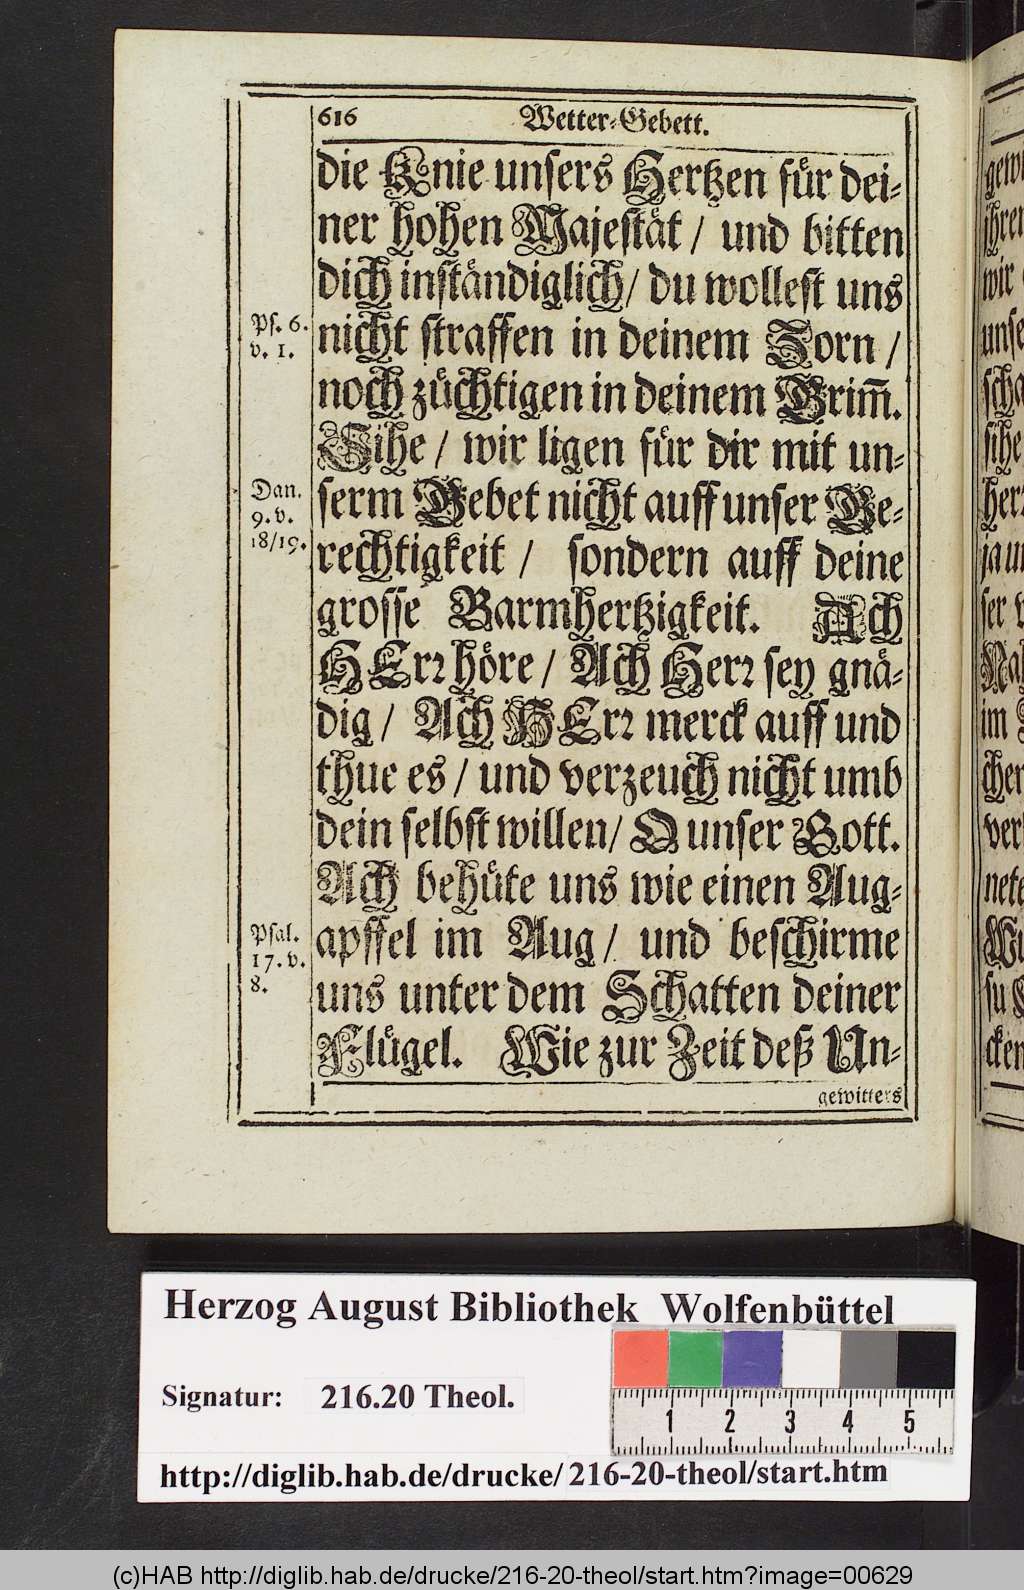 616 Wetter-Gebett.
die Knie unsers Hertzen für dei-
ner hohen Majestät / und bitten
dich inständiglich / du wollest uns
nicht straffen in deinem Zorn /
noch züchtigen in deinem Grim̄.
Sihe / wir ligen für dir mit un-
serm Gebet nicht auff unser Ge-
rechtigkeit / sondern auff deine
grosse Barmhertzigkeit. Ach
HErr höre / Ach Herr sey gnä-
dig / Ach HErr merck auff und
thue es / und verzeuch nicht umb
dein selbst willen / O unser Gott.
Ach behüte uns wie einen Aug-
apffel im Aug / und beschirme
uns unter dem Schatten deiner
Flügel. Wie zur Zeit deß Un-
gewitters
Ps. 6.
v. 1.
Dan.
9. v.
18/19.
Psal.
17. v.
8.
gew
jhren
wir
unse
scha
sihe
her
ja un
ser v
Nah
im
cher
ver
nete
Wi
su
cken
Herzog August Bibliothek Wolfenbüttel
Signatur: 216.20 Theol.
1 2 3 4 5
http://diglib.hab.de/drucke/216-20-theol/start.htm
(c)HAB http://diglib.hab.de/drucke/216-20-theol/start.htm?image=00629